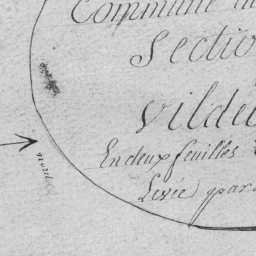 Commune d
Sectio
Vildé
En deux feuilles
Levée par